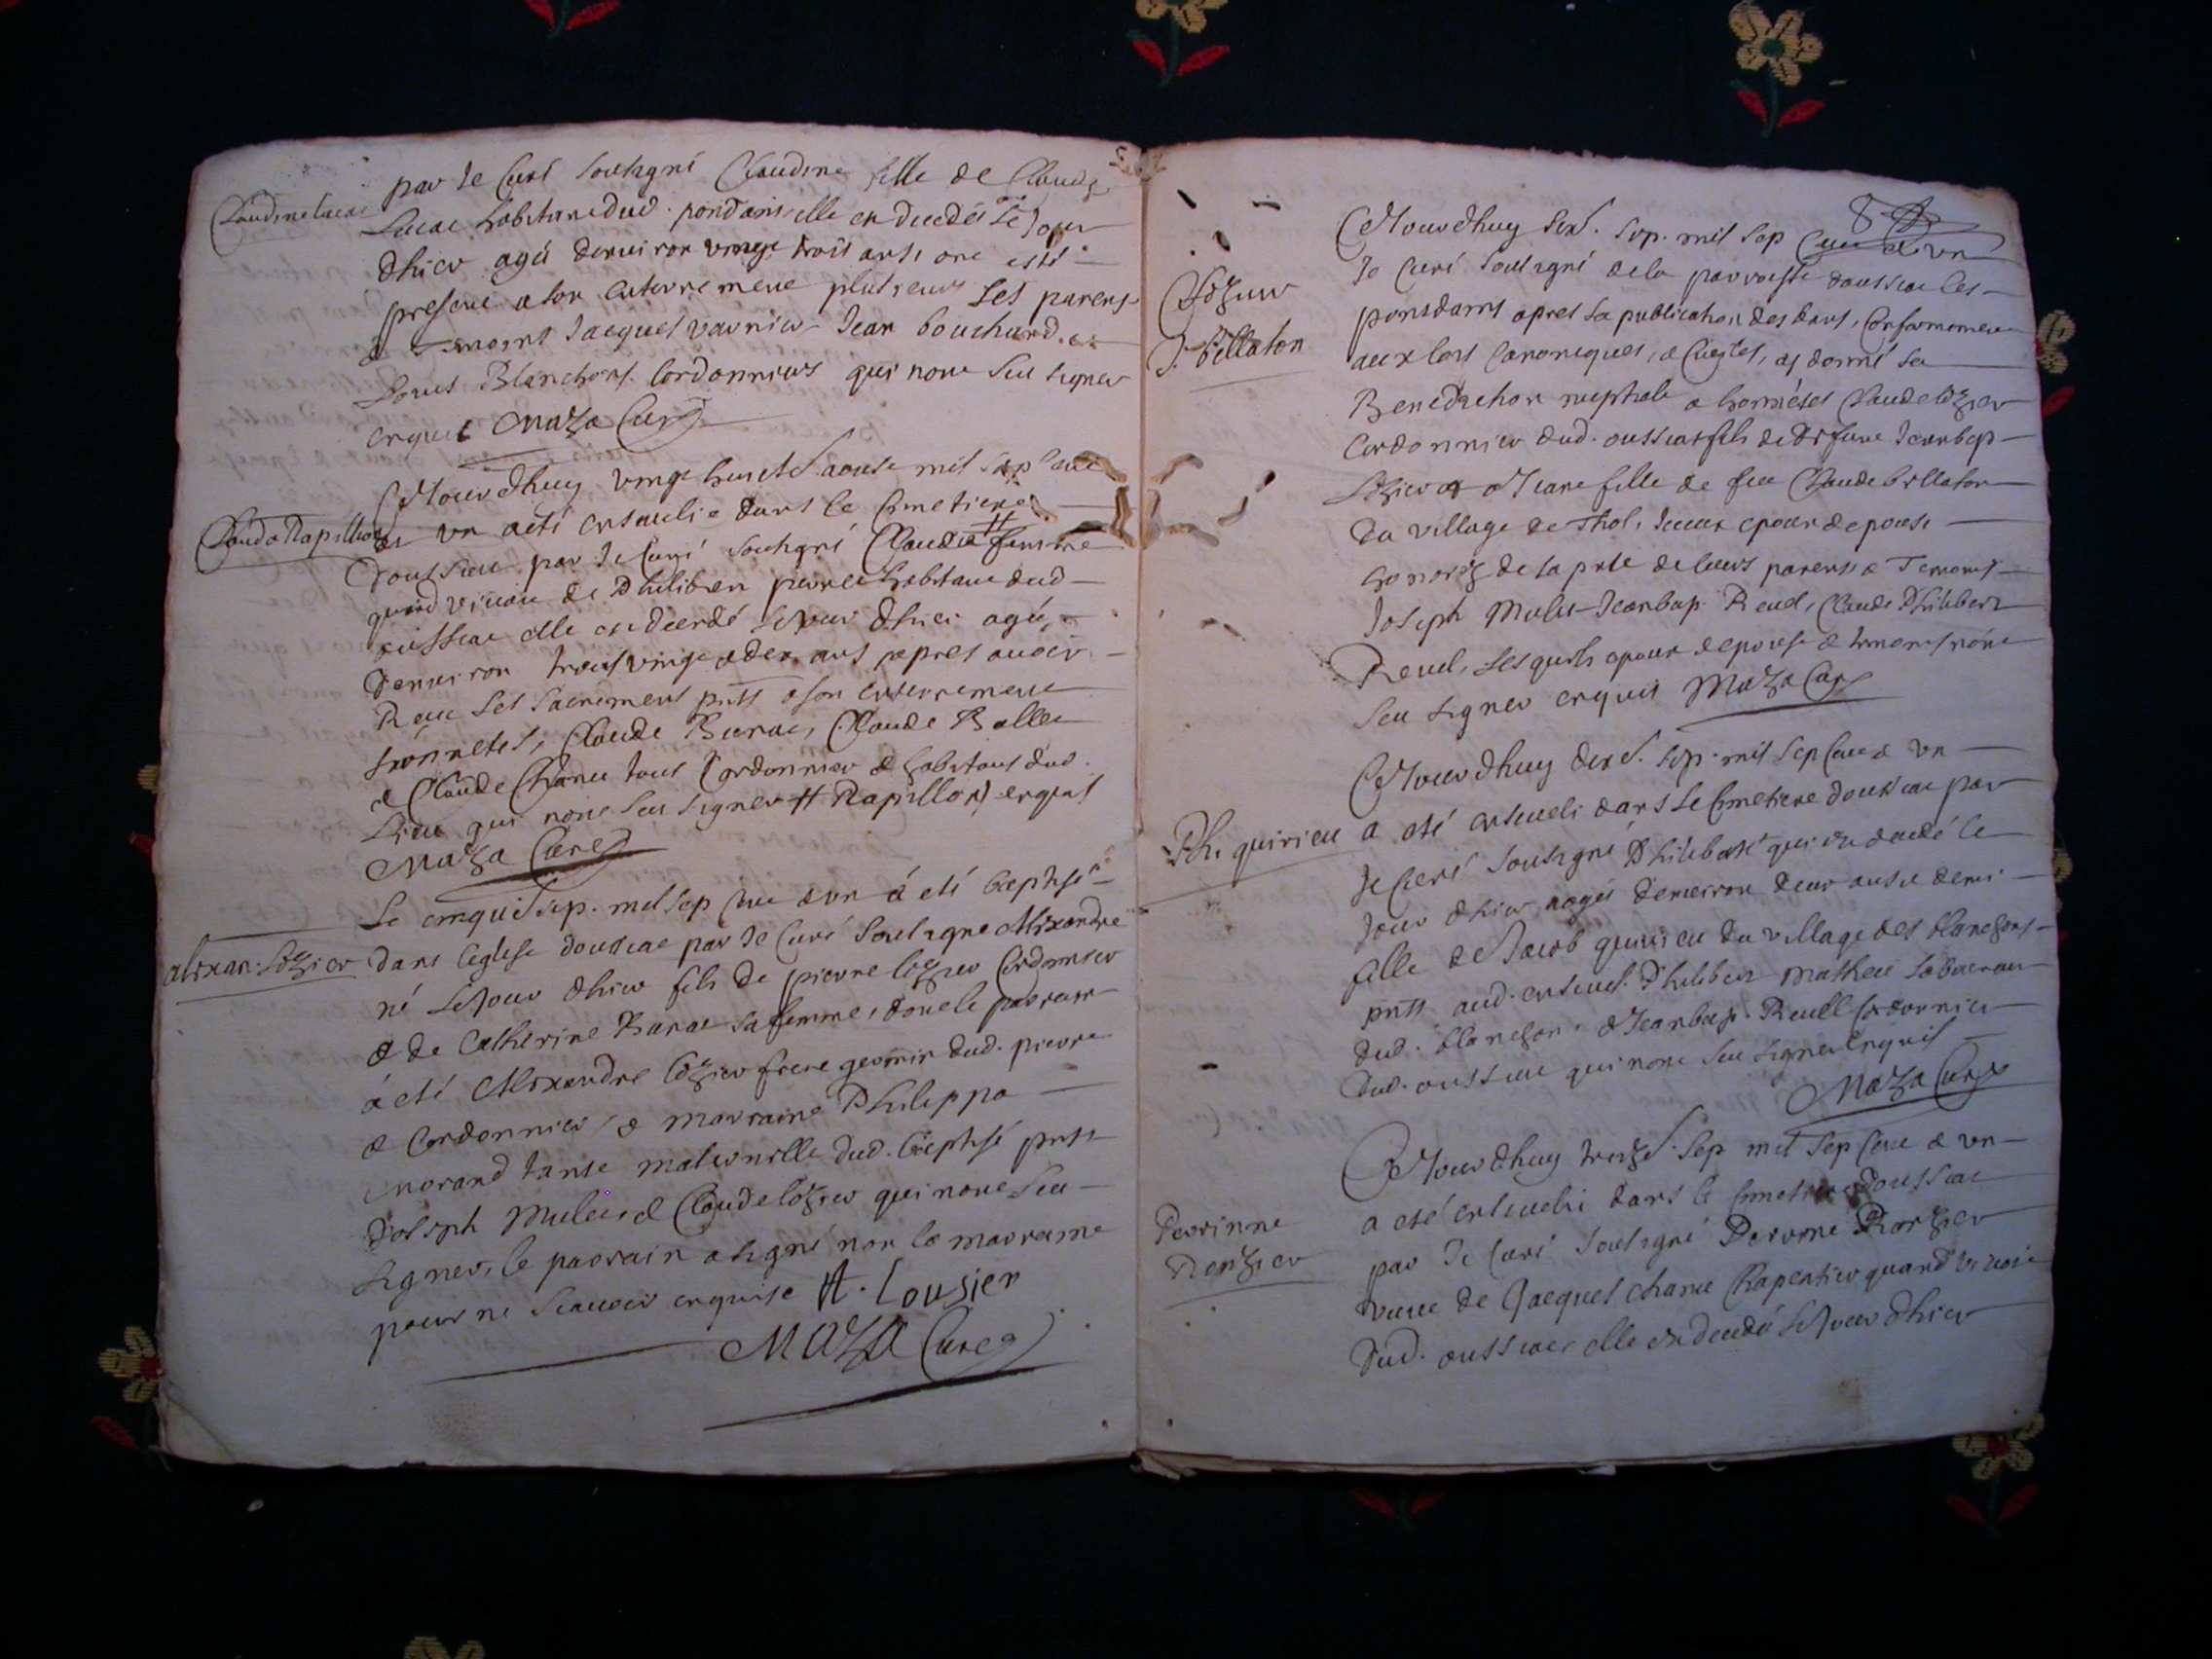 Claudine lucac
par Je Curé soubsigné Claudine fille de Claude
Lucac habitant dud. pondains elle en decedée le Jour
dhier agée denviron vingt trois ans, ont esté
present a son enterrement plusieurs Ses parens
& temoins Jacques varnier Jean bouchard. &
Louis Blanchon. Cordonniers qui nont sceu signer
enquis Maza Curé
Clauda Rapillion
Cejourdhuy vingt huict aoust mil Sept Cent
& un a eté ensevelie dans le Cimetiere
doussiac par Je Curé soubsigné Claudaz # femme
quand vivoit de Philibert pierre habitant dud
oussiac elle est decedé le Jour dhier agée
denviron trois vingt & dix ans apres avoir
Receu Ses Sacremens pnts a son enterrement
honnetes, Claude Burac, Claude Ballet
& Claude Chanu tous Cordonniers & habitans dud.
Lieu qui nont sceu signer # Rapillon enquis
Maza Curé
alixan. lozier
Le cinq Sep. mil Sep Cent & un à eté baptisé
dans leglise doussiac par Je Curé soubsigné Alixandre
né le Jour dhier fils de pierre lozier Cordonnier
& de Catherine Burac sa femme, dont le parrain
à eté Alixandre lozier frere germain dud. pierre
& Cordonnier, & marraine Philippa
morand tante maternelle dud. baptisé pnts
Joseph Mulet & Claude lozier qui nont sceu
signer, le parrain a signé non la marraine
pour ne scavoir enquise A. Lousier
Maza Curé
8
Lozier
J. Billaton
Cejourdhuy six. Sep. mil Sep Cent & un
Je Curé soubsigné de la parroisse doussiac les
ponsdains apres la publication des bans, Conformement
aux lois Canoniques, & Civiles, ay donné la
Benediction nuptiale a honnetes Claude lozier
Cordonnier dud. oussiac fils de defunt Jeanbap
Lozier & Jeane fille de feu Claude billaton
du village de Thol, Iceux epoux & epouse
honorez de la pnte de leurs parens & Temoins
Joseph Mulet Jeanbap. Reud, Claude Philibert
Reud, Lesquels epoux & epouse & temoins nont
sceu signer enquis Maza Curé
Phi. quirieu
Cejourdhuy dix. Sep. mil Sep Cent & un
a eté enseveli dans le Cimetiere doussiac par
Je Curé soubsigné Philiberte qui est decedé le
Jour dhier agée denviron deux ans & demi
fille de Jacob quirieu du village des blanchons
pnts aud. ensevel. Philibert Mathieu laboureur
dud. blanchon. & Jeanbap. Reudl Cordonnier
dud. oussiac qui nont sceu signer Enquis
Maza Curé
Perrinne
Ronzier
Cejourdhuy treize. Sep mil Sep Cent & un
a eté enseveli dans le Cimetiere doussiac
par Je Curé soubsigné Perrine Ronzier
veuve de Jacques Chanu Chapentier quand vivoit
dud. oussiac elle est decedée le Jour dhier